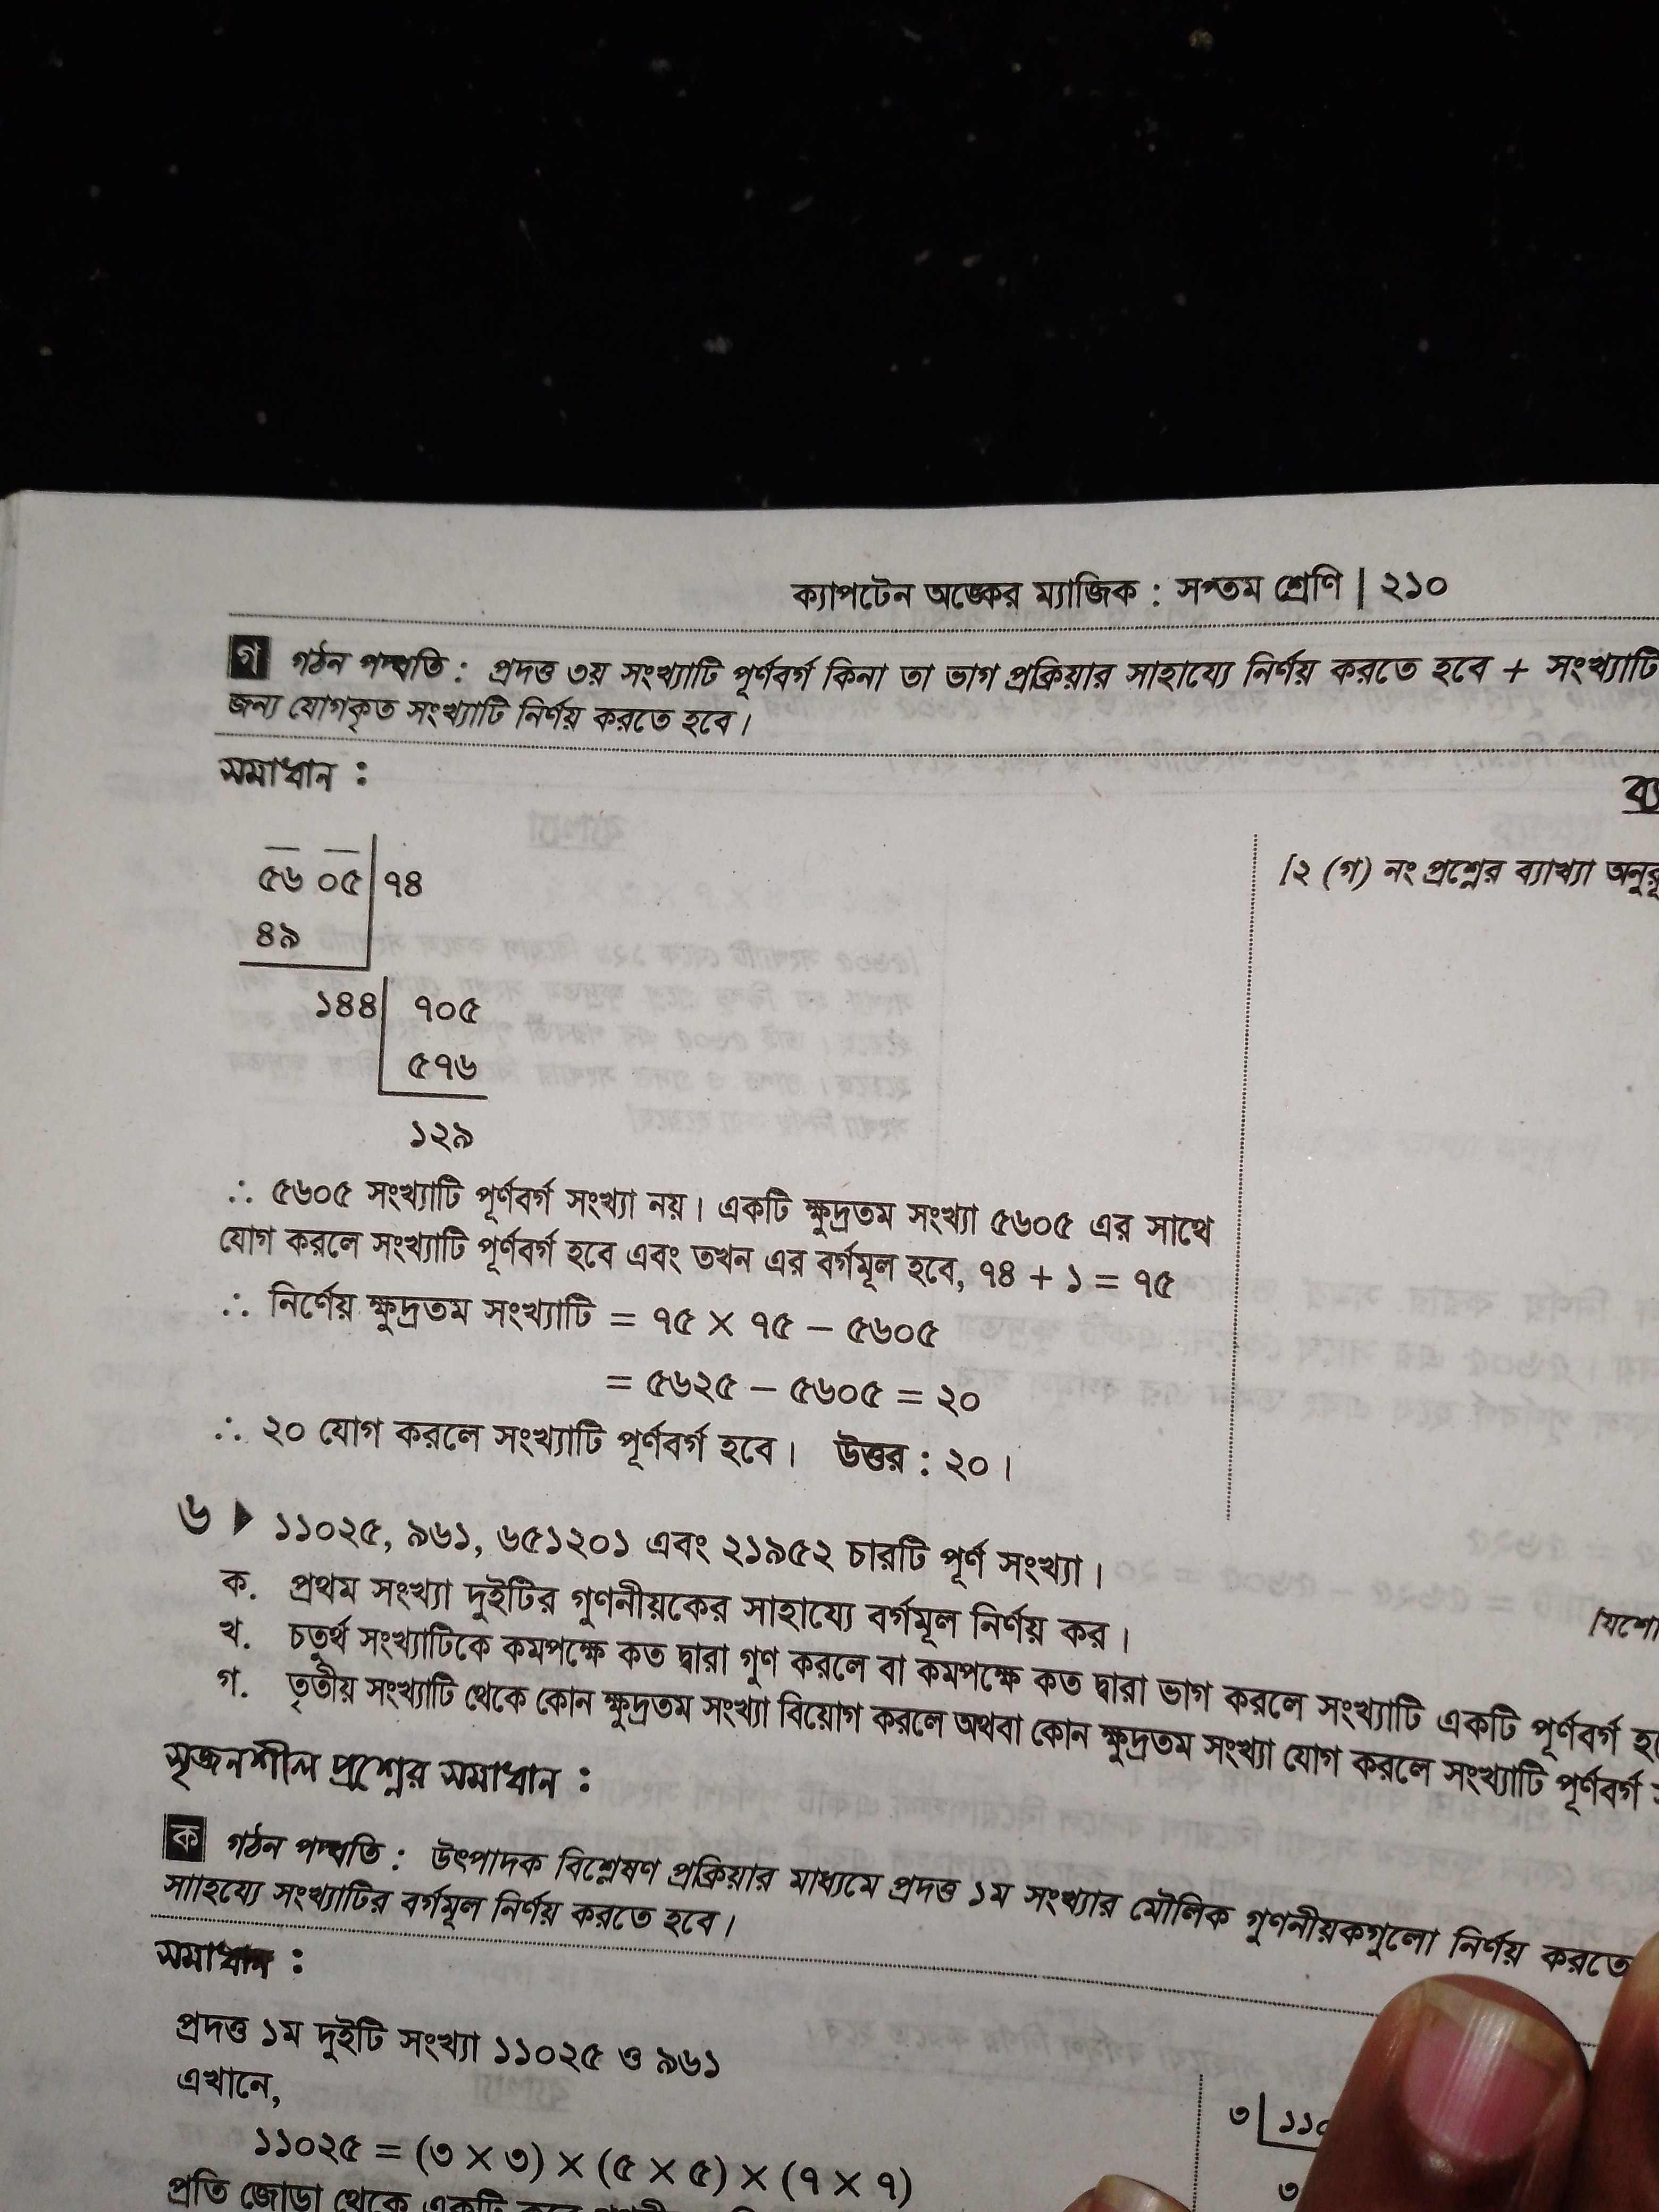 ক্যাপটেন অঙ্কের ম্যাজিক : সপ্তম শ্রেণি | ২১০
গ গঠন পদ্ধতি : প্রদত্ত ৩য় সংখ্যাটি পূর্ণবর্গ কিনা তা ভাগ প্রক্রিয়ার সাহায্যে নির্ণয় করতে হবে + সংখ্যাটি
জন্য যোগকৃত সংখ্যাটি নির্ণয় করতে হবে।
সমাধান :
৫৬ ০৫ | ৭৪
৪৯
১৪৪ | ৭০৫
৫৭৬
১২৯
[২ (গ) নং প্রশ্নের ব্যাখ্যা
∴ ৫৬০৫ সংখ্যাটি পূর্ণবর্গ সংখ্যা নয়। একটি ক্ষুদ্রতম সংখ্যা ৫৬০৫ এর সাথে
যোগ করলে সংখ্যাটি পূর্ণবর্গ হবে এবং তখন এর বর্গমূল হবে, ৭৪ + ১ = ৭৫
∴ নির্ণেয় ক্ষুদ্রতম সংখ্যাটি = ৭৫ × ৭৫ – ৫৬০৫
= ৫৬২৫ – ৫৬০৫ = ২০
∴ ২০ যোগ করলে সংখ্যাটি পূর্ণবর্গ হবে। উত্তর : ২০।
৬ ▶ ১১০২৫, ৯৬১, ৬৫১২০১ এবং ২১৯৫২ চারটি পূর্ণ সংখ্যা।
ক. প্রথম সংখ্যা দুইটির গুণনীয়কের সাহায্যে বর্গমূল নির্ণয় কর।
খ. চতুর্থ সংখ্যাটিকে কমপক্ষে কত দ্বারা গুণ করলে বা কমপক্ষে কত দ্বারা ভাগ করলে সংখ্যাটি একটি পূর্ণবর্গ
গ. তৃতীয় সংখ্যাটি থেকে কোন ক্ষুদ্রতম সংখ্যা বিয়োগ করলে অথবা কোন ক্ষুদ্রতম সংখ্যা যোগ করলে সংখ্যাটি পূর্ণবর্গ
সৃজনশীল প্রশ্নের সমাধান :
ক গঠন পদ্ধতি : উৎপাদক বিশ্লেষণ প্রক্রিয়ার মাধ্যমে প্রদত্ত ১ম সংখ্যার মৌলিক গুণনীয়কগুলো নির্ণয় করতে
সাাহয্যে সংখ্যাটির বর্গমূল নির্ণয় করতে হবে।
সমাধান :
প্রদত্ত ১ম দুইটি সংখ্যা ১১০২৫ ও ৯৬১
এখানে,
১১০২৫ = (৩ × ৩) × (৫ × ৫) × (৭ × ৭)
প্রতি জোড়া থেকে একটি